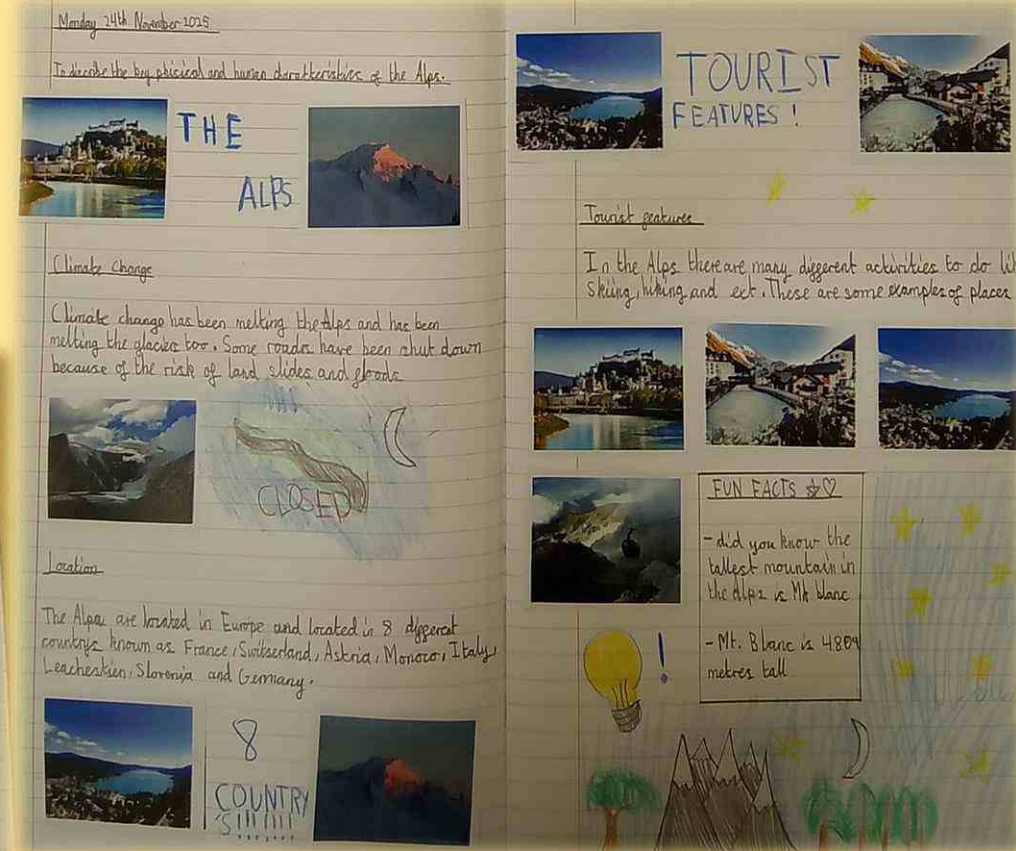 Monday 24th November 2025
To discribe the key phisical and human characteristics of the Alps.
THE
ALPS
Climate change
Climate change has been melting the Alps and has been
melting the glacies too. Some roads have been shut down
because of the risk of land slides and floods
CLOSED
Location
The Alps are located in Europe and located in 8 different
countrys known as France, Switserland, Astria, Monoco, Italy,
Leachestien, Slovenia and Germany.
8
COUNTRY
'S!!!!!!
TOURIST
FEATURES!
Tourist features
In the Alps there are many different activities to do li
Skiing, hiking and ect. These are some examples of places
FUN FACTS ☆♡
- did you know the
tallest mountain in
the alps is Mt blanc
- Mt. Blanc is 4809
metres tall
!